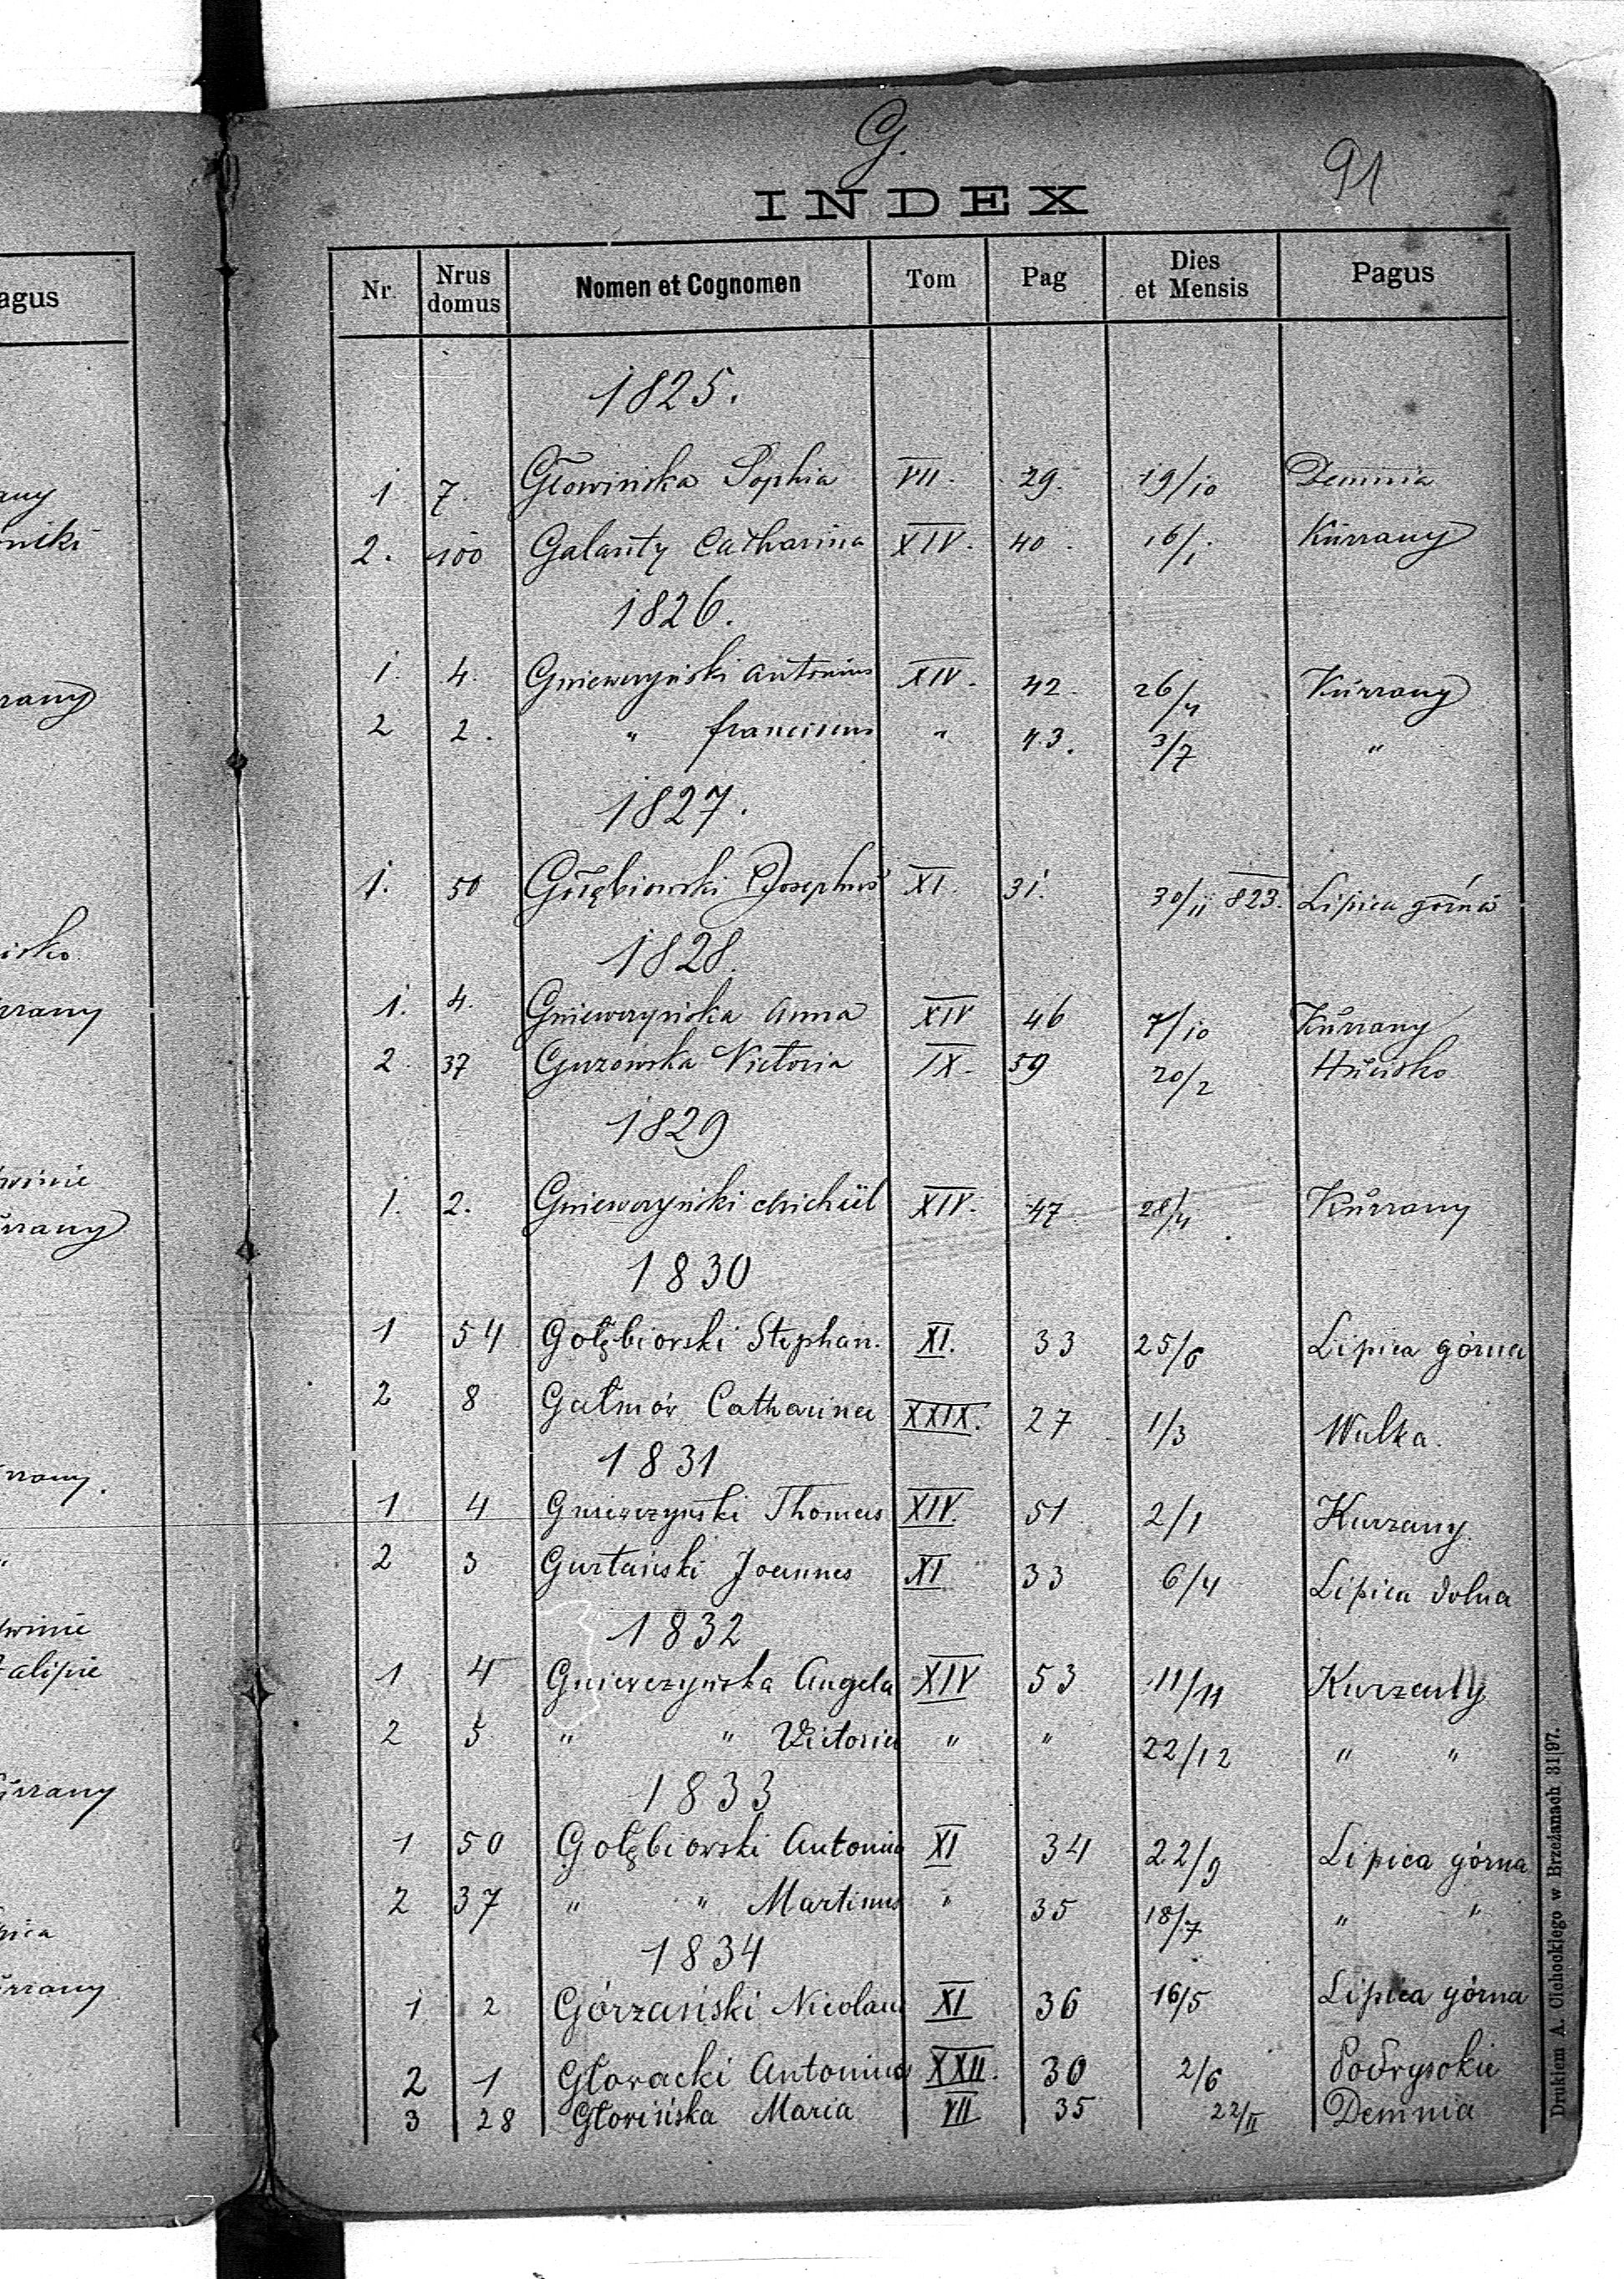 agus
any
niki
rany
isko
rrany
winie
urrany
rrany.
"
winie
alipie
urrany
pica
urrany
G.
91
INDEX
Nr. Nrus domus Nomen et Cognomen Tom Pag Dies et Mensis Pagus
1825.
1 7. Głowińska Sophia VII. 29. 19/10 Demnia
2. 100 Galanty Catharina XIV. 40. 16/1. Kurzany
1826.
1. 4. Gniewczyński Antonius XIV. 42. 26/4 Kurzany
2 2. " Franciscus " 43. 3/7 "
1827.
1. 50 Gołębiowski Josephus XI. 31. 30/11 823. Lipica górna
1828.
1. 4. Gniewczyńska Anna XIV 46 7/10 Kurzany
2. 37 Guzowska Victoria IX. 59 20/2 Hucisko
1829
1. 2. Gniewczyński Michael XIV. 47 28/4 Kurzany
1830
1 54 Gołębiowski Stephan. XI. 33 25/6 Lipica górna
2 8 Gałmów Catharina XXIX. 27 1/3 Wulka.
1831
1 4 Gniewczyński Thomas XIV. 51 2/1 Kurzany.
2 3 Gurtański Joannes XI 33 6/4 Lipica dolna
1832
1 4 Gniewczyńska Angela XIV 53 11/11 Kurzany
2 5 " " Victoria " " 22/12 " "
1833
1 50 Gołębiowski Antonius XI 34 22/9 Lipica górna
2 37 " " Martinus " 35 18/7 " "
1834
1 2 Górzański Nicolaus XI 36 16/5 Lipica górna
2 1 Głowacki Antonius XXII. 30 2/6 Podwysokie
3 28 Głowińska Maria VII 35 22/II Demnia
Drukiem A. Cichockiego w Brzeżanach 31|97.